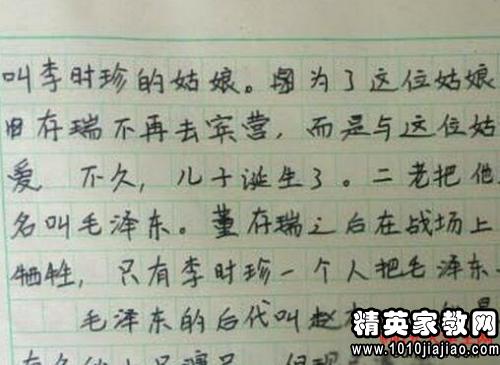 叫李时珍的姑娘。因为了这位姑娘
旧存瑞不再去宾营，而是与这位姑
爱，不久，儿子诞生了。二老把他
名叫毛泽东。董存瑞之后在战场上
牺牲，只有李时珍一个人把毛泽东
毛泽东的后代叫赵
精英家教网
www.1010jiajiao.com